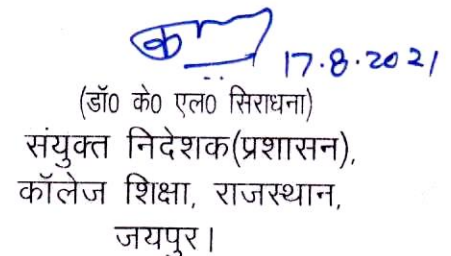 17.8.2021
(डॉ0 के0 एल0 सिराधना)
संयुक्त निदेशक(प्रशासन),
कॉलेज शिक्षा, राजस्थान,
जयपुर।